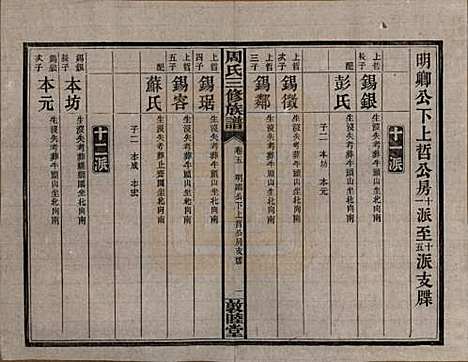 明卿公下上哲公房十一派至十五派支牒
十一派
上哲長子 錫銀 生沒失考葬牛頭山坐北向南
配 彭氏 生沒失考葬牛頭山坐北向南
子二 本坊 本元
上哲次子 錫徵 生沒失考葬牛頭山坐北向南
上哲三子 錫鄰 生沒失考葬牛頭山坐北向南
周氏三修族譜
卷五 明卿公下上哲公房支牒
一
敦睦堂
上哲四子 錫琚 生沒失考葬牛頭山坐北向南
上哲五子 錫客 生沒失考葬牛頭山坐北向南
配 蘇氏 生沒失考葬北向南
子二 本成 本宏
十二派
錫銀長子 本坊 生沒失考葬牛頭山坐北向南
錫銀次子 本元 生沒失考葬牛頭山坐北向南